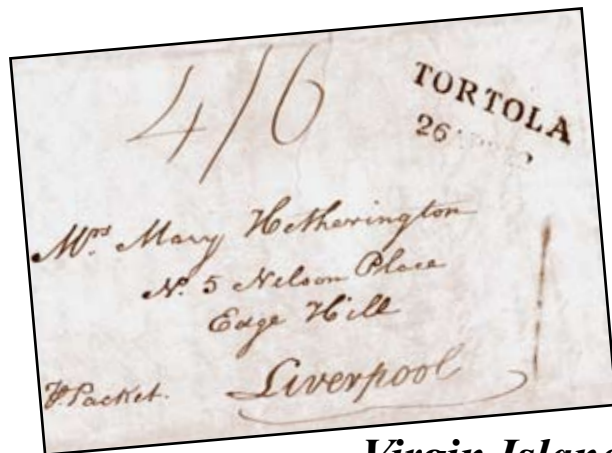 4/6
TORTOLA
26
Mrs. Mary Hetherington
No. 5 Nelson Place
Edge Hill
Liverpool
Packet.
Virgin Islan